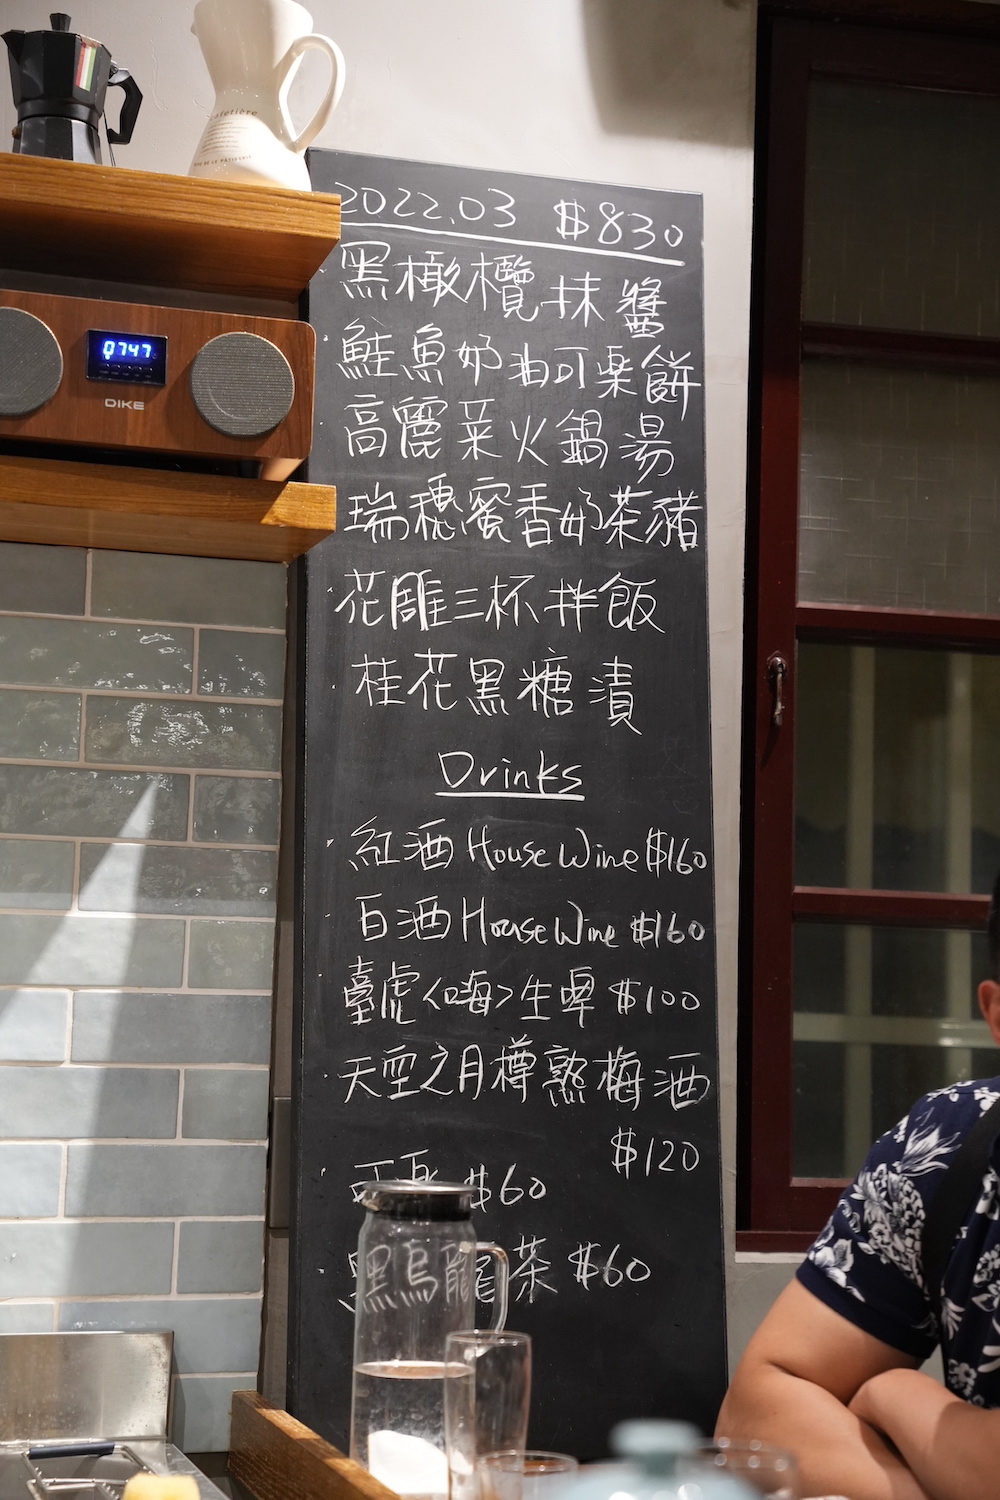 afetière
2022.03 $830
黑橄欖抹醬
鮭魚奶油可樂餅
高麗菜火鍋湯
瑞穗蜜香奶茶豬
花雕三杯拌飯
桂花黑糖漬
Drinks
紅酒 House Wine $160
白酒 House Wine $160
臺虎<嗨>生啤 $100
天空之月樽熟梅酒
$120
可樂 $60
黑烏龍茶 $60
0747
DIKE